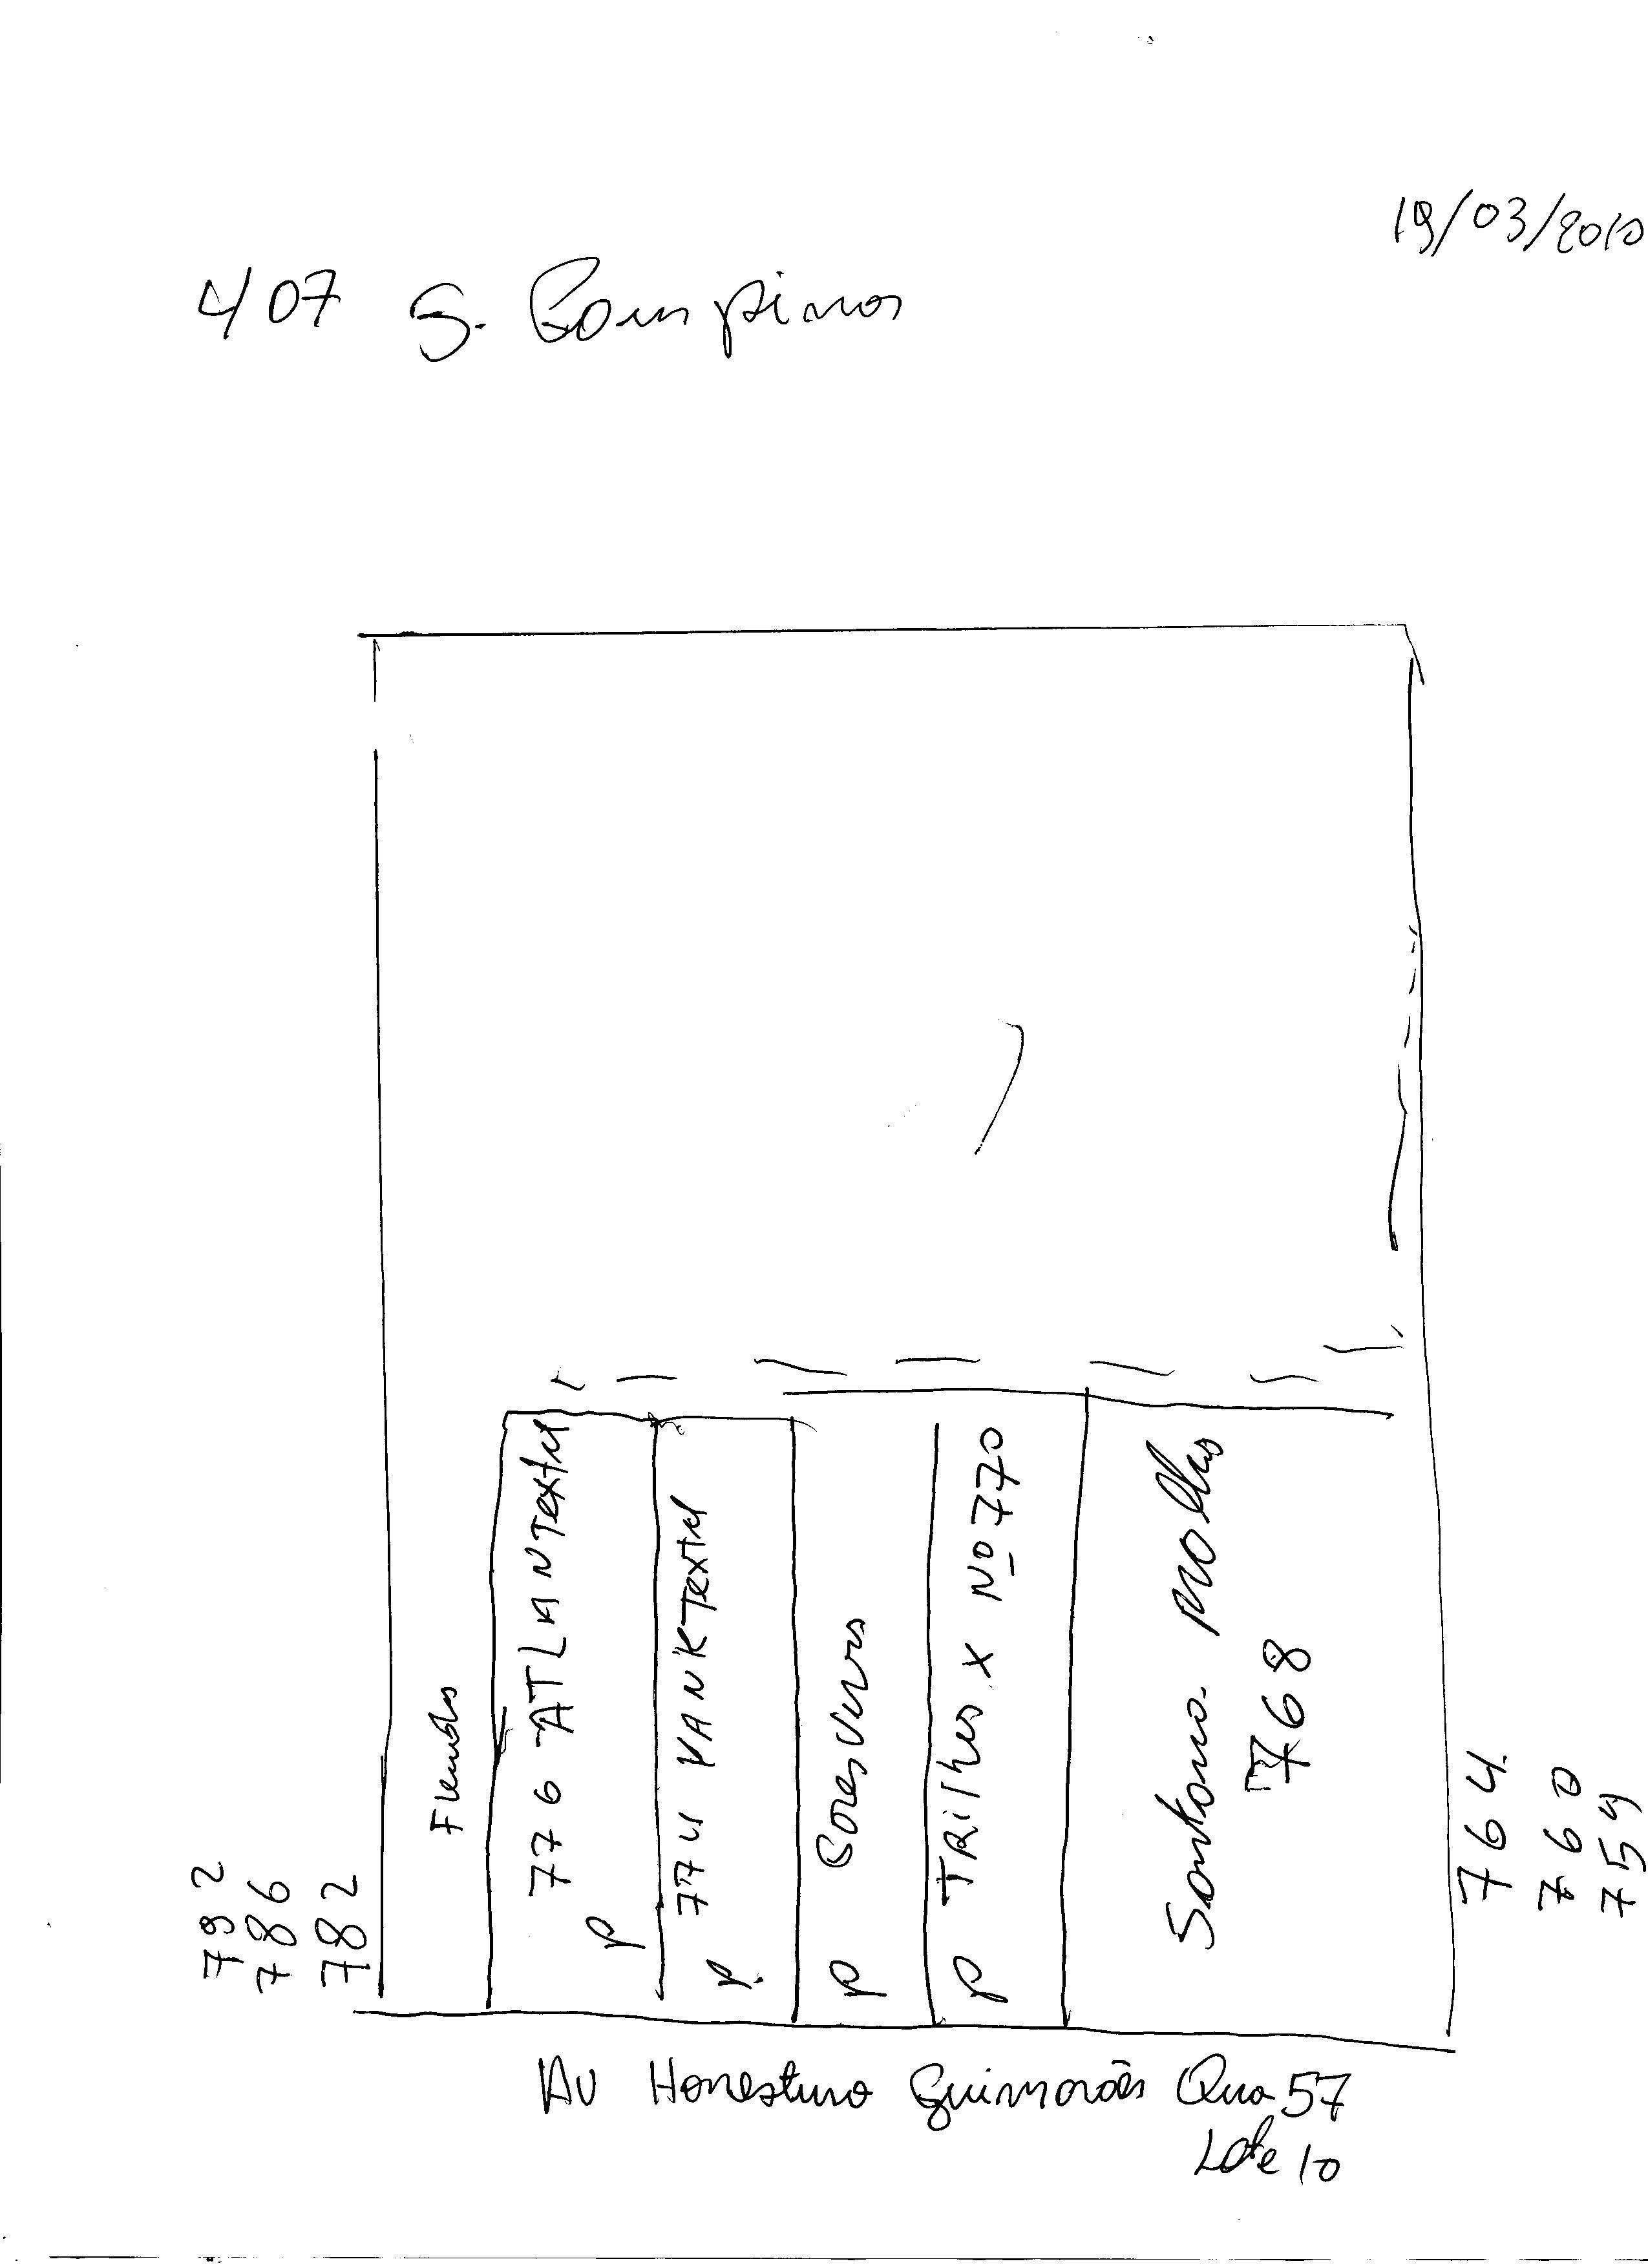 19/03/2010
407 S. Campinas
792
786
782
776 ATLANTextil
P
774 VANKTextil
P.
P
P TRilhos X Nº 770
Santana
768
764.
760
759
Av Honestino Guimarães Qua 57
Lote 10